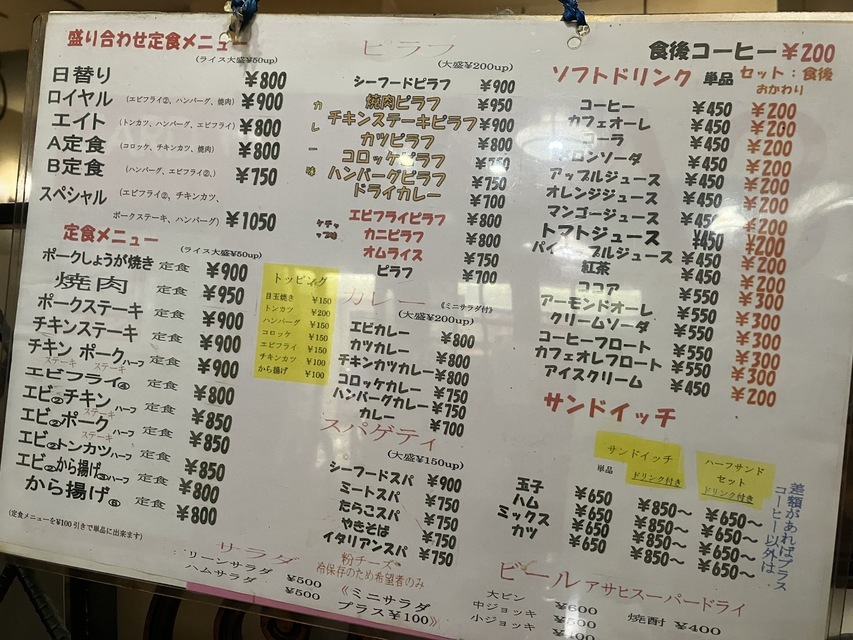 盛り合わせ定食メニュー
(ライス大盛¥50up)
日替り ¥800
ロイヤル (エビフライ②、ハンバーグ、焼肉) ¥900
エイト (トンカツ、ハンバーグ、エビフライ) ¥800
A定食 (コロッケ、チキンカツ、焼肉) ¥800
B定食 (ハンバーグ、エビフライ②、) ¥750
スペシャル (エビフライ②、チキンカツ、
ポークステーキ、ハンバーグ) ¥1050
定食メニュー
(ライス大盛¥50up)
ポークしょうが焼き 定食 ¥900
焼肉 定食 ¥950
ポークステーキ 定食 ¥900
チキンステーキ 定食 ¥900
チキンステーキ ポークステーキ ハーフ 定食 ¥900
エビフライ④ 定食 ¥800
エビ②チキンステーキ ハーフ 定食 ¥850
エビ②ポークステーキ ハーフ 定食 ¥850
エビ②トンカツハーフ 定食 ¥850
エビ②から揚げ③ハーフ 定食 ¥800
から揚げ⑥ 定食 ¥800
(定食メニューを¥100引きで単品に出来ます)
トッピング
目玉焼き ¥150
トンカツ ¥200
ハンバーグ ¥150
コロッケ ¥150
エビフライ ¥150
チキンカツ ¥100
から揚げ ¥100
ピラフ
(大盛¥200up)
シーフードピラフ ¥900
カレー味
焼肉ピラフ ¥950
チキンステーキピラフ ¥900
カツピラフ ¥800
コロッケピラフ
ハンバーグピラフ ¥750
ドライカレー ¥700
ケチャップ味
エビフライピラフ ¥800
カニピラフ ¥800
オムライス ¥750
ピラフ ¥700
カレー 《ミニサラダ付》
(大盛¥200up)
エビカレー ¥800
カツカレー ¥800
チキンカツカレー ¥800
コロッケカレー ¥750
ハンバーグカレー ¥750
カレー ¥700
スパゲティ
(大盛¥150up)
シーフードスパ ¥900
ミートスパ ¥750
たらこスパ ¥750
やきそば ¥750
イタリアンスパ ¥750
サラダ
リーンサラダ ¥500
ハムサラダ ¥500
粉チーズ
冷保存のため希望者のみ
《ミニサラダ
プラス¥100》
食後コーヒー¥200
ソフトドリンク 単品 セット:食後
おかわり
コーヒー ¥450 ¥200
カフェオーレ ¥450 ¥200
コーラ ¥450 ¥200
ロンソーダ ¥450 ¥200
アップルジュース ¥450 ¥200
オレンジジュース ¥450 ¥200
マンゴージュース ¥200
トマトジュース ¥450 ¥200
パインアップルジュース ¥450 ¥200
紅茶 ¥450 ¥200
ココア ¥550 ¥300
アーモンドオーレ ¥550 ¥300
クリームソーダ ¥550 ¥300
コーヒーフロート ¥550 ¥300
カフェオレフロート ¥550 ¥300
アイスクリーム ¥450 ¥200
サンドイッチ
単品
サンドイッチ
ドリンク付き
ハーフサンド
セット
ドリンク付き
玉子 ¥650 ¥850~ ¥650~
ハム ¥650 ¥850~ ¥650~
ミックス ¥650 ¥850~ ¥650~
カツ ¥650 ¥850~ ¥650~
コーヒー以外は
差額があればプラス
ビール アサヒスーパードライ
大ビン ¥600
中ジョッキ ¥500
小ジョッキ
焼酎 ¥400